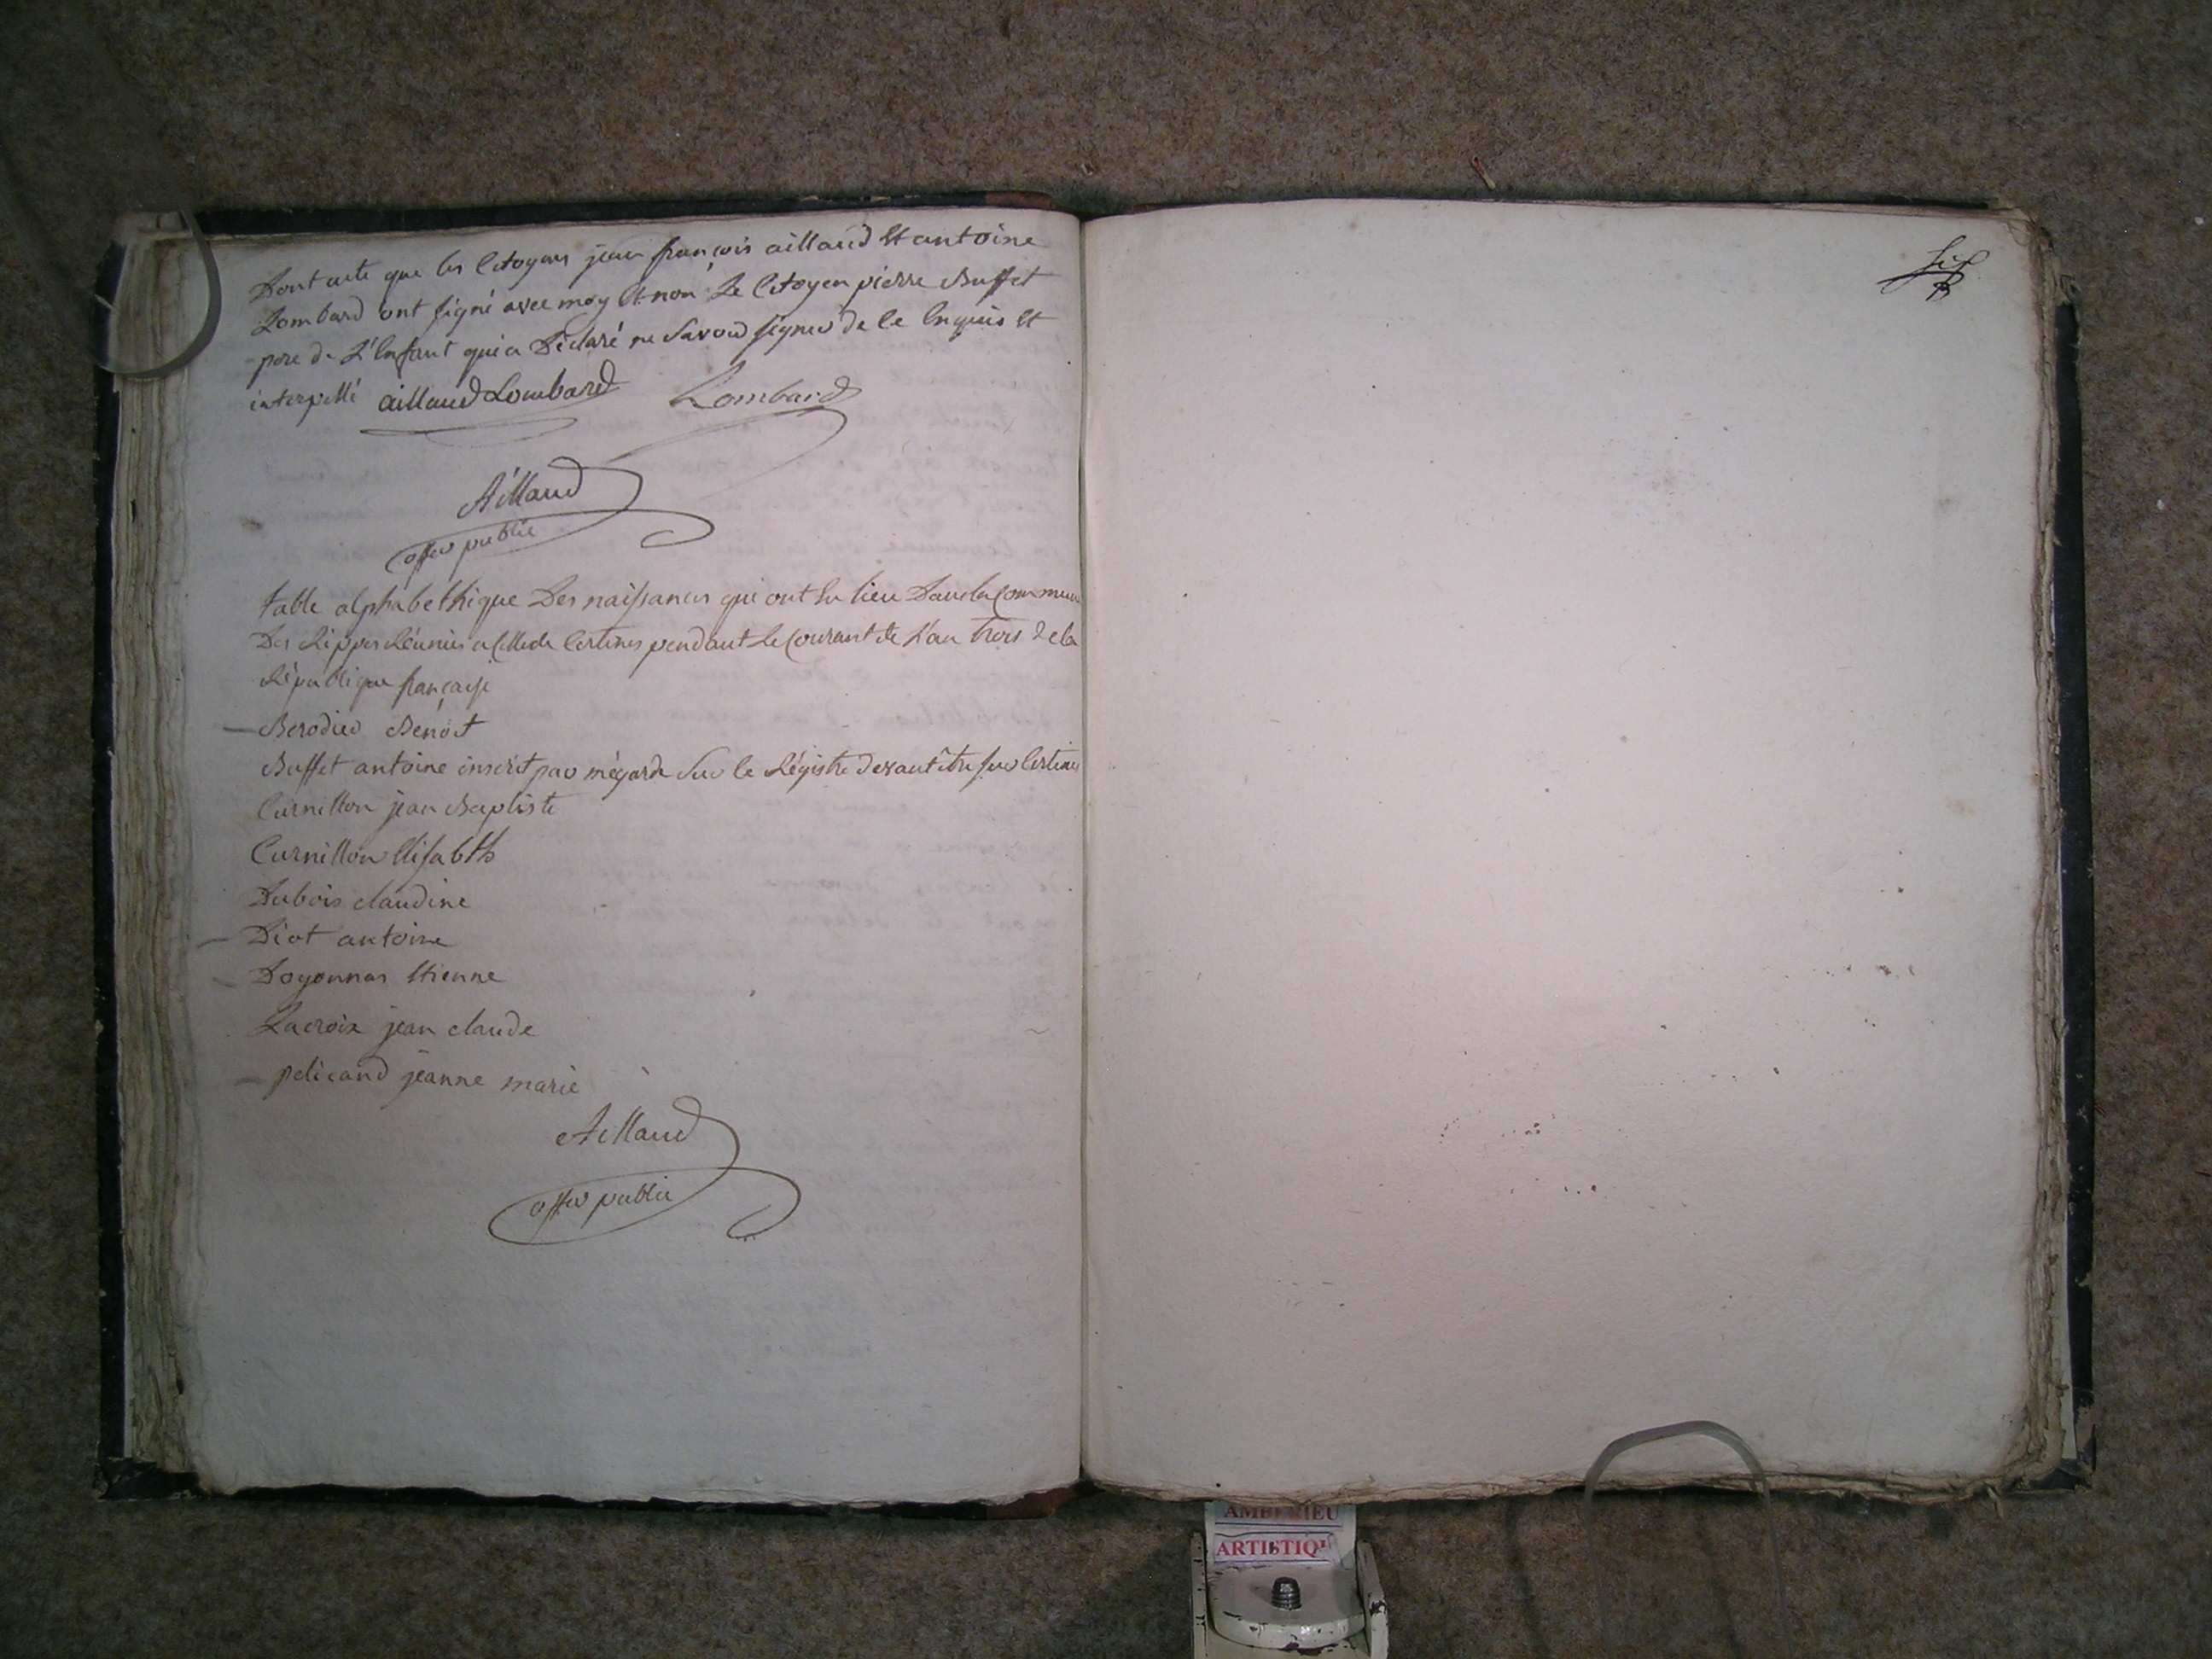 Dont acte que les Citoyens jean françois aillaud Et antoine
Lombard ont signé avec moy Et non Le Citoyen pierre Buffet
pere de L'Enfant qui a Déclaré ne Savoir signer de ce Enquis Et
interpellé aillaud Lombard Lombard
Aillaud
offer public
table alphabethique Des naissances qui ont Eu lieu Dans la Commune
Des Rippes Réunies a Celle de Certines pendant Le Courant de L'an trois de la
République française
Berodier Benoit
Buffet antoine inscrit par mégarde Sur le Régistre devant être sur Certines
Curnillon jean Baptiste
Curnillon Elisabth
Dubois claudine
Diot antoine
Doyonnas Etienne
Lacroix jean claude
pelicand jeanne marie
Aillaud
offer public
six
AMBERIEU
ARTISTIQU